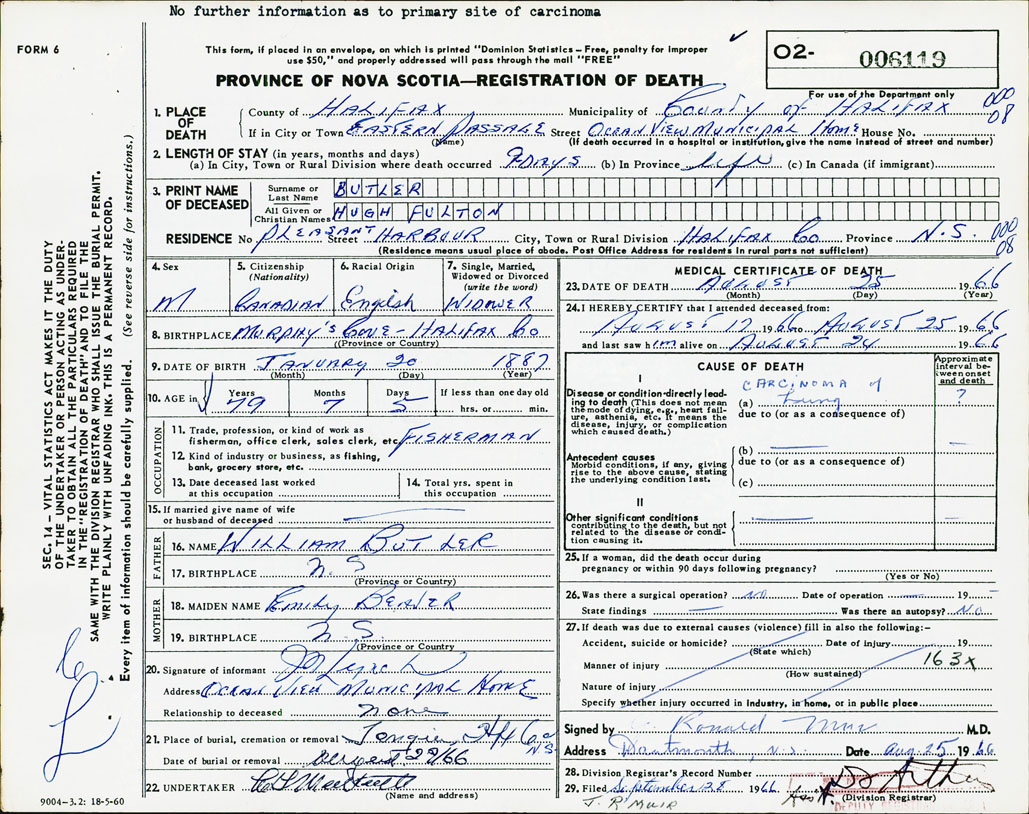 No further information as to primary site of carcinoma
FORM 6
This form, if placed in an envelope, on which is printed "Dominion Statistics – Free, penalty for improper
use $50," and properly addressed will pass through the mail "FREE"
PROVINCE OF NOVA SCOTIA—REGISTRATION OF DEATH
O2- 006119
For use of the Department only
000
08
1. PLACE OF DEATH
County of HALIFAX Municipality of COUNTY OF HALIFAX
If in City or Town EASTERN PASSAGE Street OCEAN VIEW MUNICIPAL HOME House No.
(Name) (If death occurred in a hospital or institution, give the name instead of street and number)
2. LENGTH OF STAY (in years, months and days)
(a) In City, Town or Rural Division where death occurred 9 DAYS (b) In Province life (c) In Canada (if immigrant)
3. PRINT NAME OF DECEASED
Surname or Last Name BUTLER
All Given or Christian Names HUGH FULTON
RESIDENCE No PLEASANT Street HARBOUR City, Town or Rural Division HALIFAX Co Province N.S.
000
08
(Residence means usual place of abode. Post Office Address for residents in rural parts not sufficient)
4. Sex
M
5. Citizenship (Nationality)
CANADIAN
6. Racial Origin
English
7. Single, Married, Widowed or Divorced (write the word)
WIDOWER
8. BIRTHPLACE MURPHY'S COVE – HALIFAX Co
(Province or Country)
9. DATE OF BIRTH JANUARY 20 1887
(Month) (Day) (Year)
10. AGE in
Years Months Days If less than one day old
79 7 5 hrs. or min.
OCCUPATION
11. Trade, profession, or kind of work as
fisherman, office clerk, sales clerk, etc. FISHERMAN
12. Kind of industry or business, as fishing,
bank, grocery store, etc.
13. Date deceased last worked
at this occupation
14. Total yrs. spent in
this occupation
15. If married give name of wife
or husband of deceased —
FATHER
16. NAME WILLIAM BUTLER
17. BIRTHPLACE N.S
(Province or Country)
MOTHER
18. MAIDEN NAME Emily BEAVER
19. BIRTHPLACE N.S.
(Province or Country)
20. Signature of informant
Address OCEAN VIEW MUNICIPAL HOME
Relationship to deceased none
21. Place of burial, cremation or removal Tangier Hfx Co
N.S.
Date of burial or removal 66
22. UNDERTAKER
(Name and address)
MEDICAL CERTIFICATE OF DEATH
23. DATE OF DEATH AUGUST 25 1966
(Month) (Day) (Year)
24. I HEREBY CERTIFY that I attended deceased from:
AUGUST 17 1966 to AUGUST 25 1966
and last saw him alive on AUGUST 24 1966
CAUSE OF DEATH
Approximate interval between onset and death
I
Disease or condition directly leading to death (This does not mean the mode of dying, e.g., heart failure, asthenia, etc. It means the disease, injury, or complication which caused death.)
CARCINOMA of
(a) Lung ?
due to (or as a consequence of)
Antecedent causes
Morbid conditions, if any, giving rise to the above cause, stating the underlying condition last.
(b) — —
due to (or as a consequence of)
(c)
II
Other significant conditions
contributing to the death, but not related to the disease or condition causing it.
— —
25. If a woman, did the death occur during
pregnancy or within 90 days following pregnancy?
(Yes or No)
26. Was there a surgical operation? NO Date of operation — 19 —
State findings — Was there an autopsy? NO
27. If death was due to external causes (violence) fill in also the following:–
Accident, suicide or homicide? Date of injury 19
(State which)
Manner of injury 163x
(How sustained)
Nature of injury
Specify whether injury occurred in Industry, in home, or in public place
Signed by Ronald Muir M.D.
Address Dartmouth, N.S. Date Aug. 25 1966
28. Division Registrar's Record Number
29. Filed September 1966
(Division Registrar)
J. R Muir
SEC. 14 – VITAL STATISTICS ACT MAKES IT THE DUTY
OF THE UNDERTAKER OR PERSON ACTING AS UNDER-
TAKER TO OBTAIN ALL THE PARTICULARS REQUIRED
IN THE "REGISTRATION OF DEATH" AND TO FILE THE
SAME WITH THE DIVISION REGISTRAR WHO SHALL ISSUE THE BURIAL PERMIT.
WRITE PLAINLY WITH UNFADING INK. THIS IS A PERMANENT RECORD.
Every item of information should be carefully supplied. (See reverse side for instructions.)
9004–3.2: 18-5-60